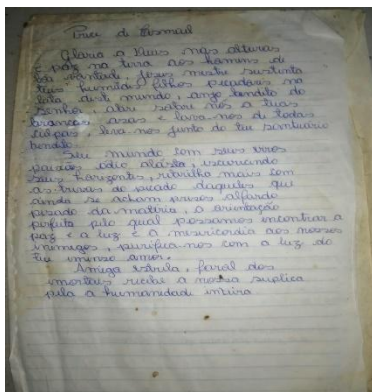 Prece de Ismael
Glória a Deus nas alturas
e paz na terra aos homens de
boa vontade, Jesus mestre sustenta
teus humildes filhos pecadores na
luta deste mundo, anjo bendito do
Senhor, abri sobre nós a tuas
brancas asas e leva-nos de todas
junto do teu santuário
bendito.
Seu mundo com seus erros
paixões ódio alastra, escurecendo
seus horizontes, mais com
as trevas do pecado daqueles que
ainda se acham presos alfardo
pesado da matéria, a orientação
perfeita pela qual possamos encontrar a
paz e a luz e a misericordia aos nossos
inimigos, purifica-nos com a luz do
teu imenso amor.
Amiga estrela, farol dos
imortais recebe a nossa suplica
pela a humanidade inteira